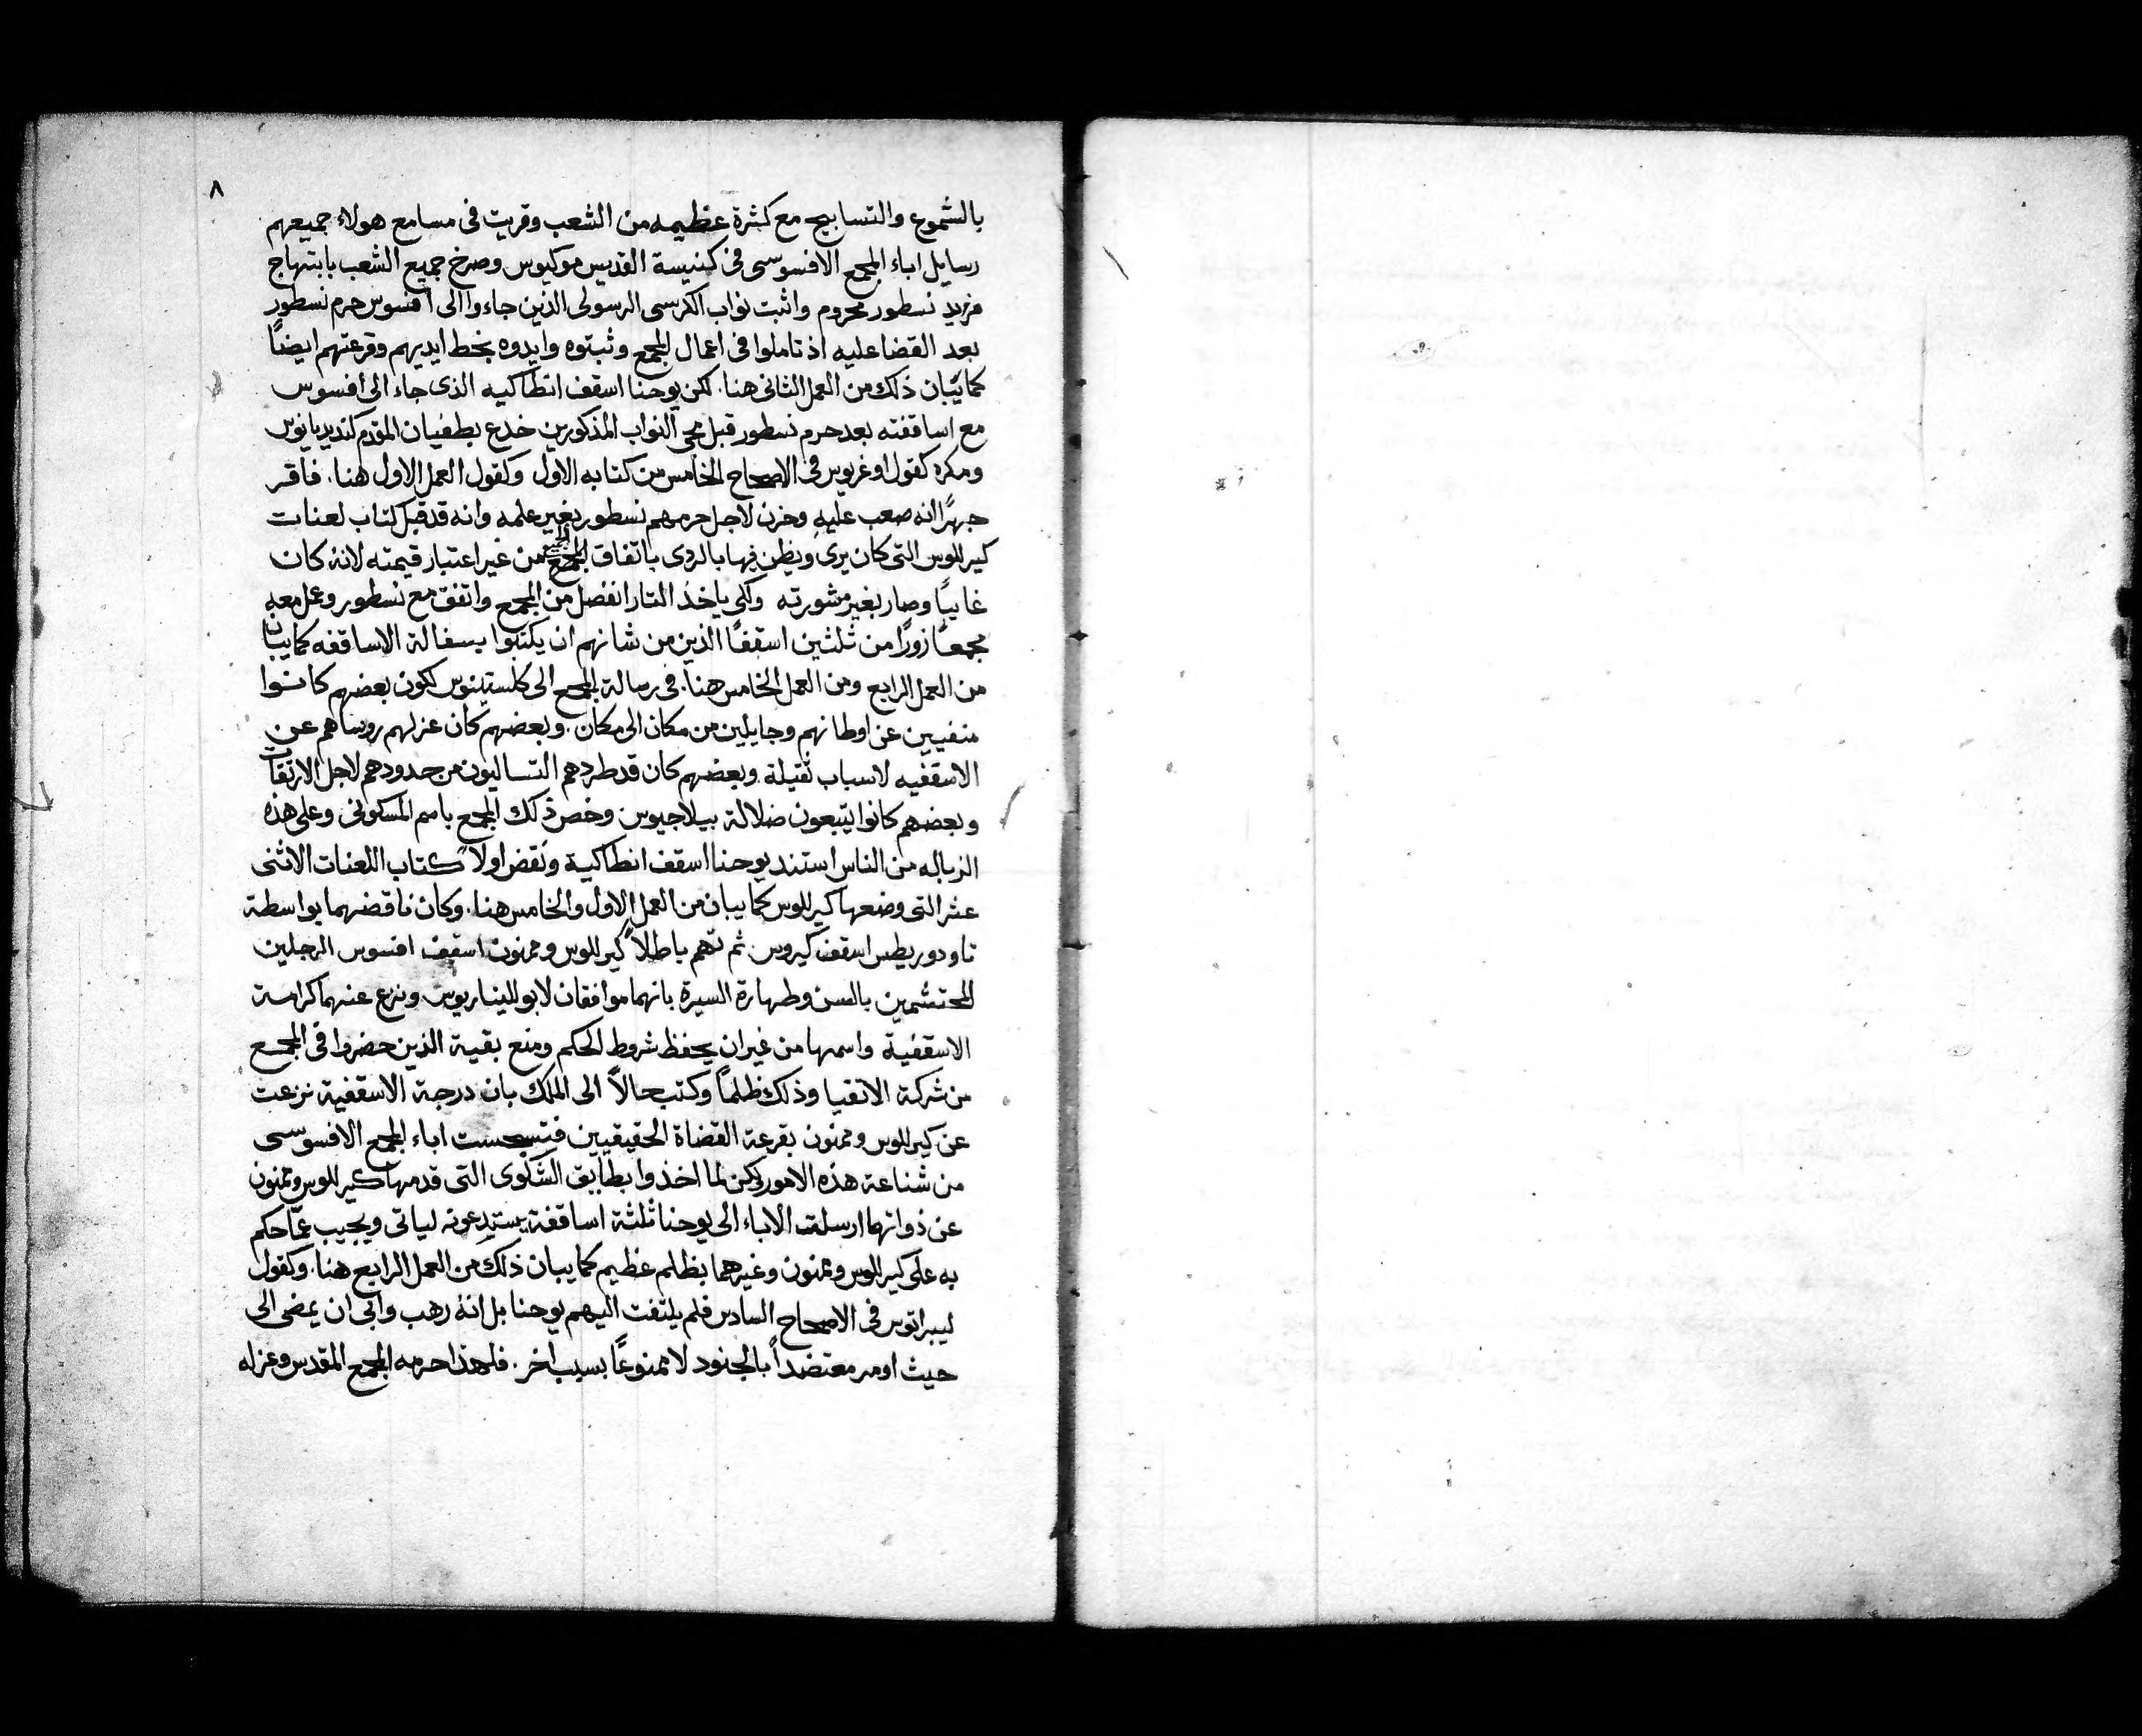 ٨
بالشموع والتسابيح مع كثرة عظيمه من الشعب وقريت فى مسامع هولاء جميعهم
رسايل اباء المجمع الافسوسى فى كنيسة القديس موكيوس وصرخ جميع الشعب بابتهاج
فزيد نسطور محروم واثبت نواب الكرسى الرسولى الذين جاءوا الى افسوس حرم نسطور
بعد القضا عليه اذ تاملوا فى اعمال المجمع وثبتوه وايدوه بخط ايديهم وقرعتهم ايضًا
كما يبان ذلك من العمل الثانى هنا. لكن يوحنا اسقف انطاكيه الذى جاء الى افسوس
مع اساقفته بعد حرم نسطور قبل مجى النواب المذكورين خدع بطغيان المقدم كنديديانوس
ومكره كقول اوغريوس فى الاصحاح الخامس من كتابه الاول وكقول العمل الاول هنا. فاقر
جهرًا انه صعب عليهِ وحزن لاجل حرمهم نسطور بغير علمه وانه قد قبل كتاب لعنات
كيرللوس التى كان يرى ويظن فيها بالردى باتفاق المجمع من غير اعتبار قيمته لانهُ كان
غايبًا وصار بغير مشورته ولكى ياخذ التار انفصل من المجمع واتفق مع نسطور وعمل معه
مجمعًا زورًا من ثلثين اسقفًا الذين من شانهم ان يكتبوا بسفالة الاساقفه كما يبان
من العمل الرابع ومن العمل الخامس هنا. فى رسالة المجمع الى كلستينوس لكون بعضهم كانوا
منفيين عن اوطانهم وجايلين من مكان الى مكان. وبعضهم كان عزلهم روساهم عن
الاسقفيه لاسباب ثقيلة. وبعضهم كان قد طردهم التساليون من حدودهم لاجل الارتقات
وبعضهم كانوا يتبعون ضلالة بيلاجيوس وخص ذلك المجمع باسم المسكونى وعلى هذه
الزباله من الناس استند يوحنا اسقف انطاكية ونقض اولاً كتاب اللعنات الاثنى
عشر التى وضعها كيرللوس كما يبان من العمل الاول والخامس هنا. وكان ناقضهما بواسطة
تاودوريطس اسقف كيروس. ثم تهم باطلاً كيرللوس وممنون اسقف افسوس الرجلين
المحتشمين بالسن وطهارة السيرة بانهما موافقان لابولليناريوس ونزع عنهما كرامة
الاسقفية واسمها من غير ان يحفظ شروط الحكم ومنع بقية الذين حضروا فى المجمع
من شركة الاتقيا وذلك ظلمًا وكتب حالاً الى الملك بان درجة الاسقفية نزعت
عن كيرللوس وممنون بقرعة القضاة الحقيقيين فتسجست اباء المجمع الافسوسى
من شناعة هذه الامور ولكن لما اخذوا بطايق الشكوى التى قدمها كيرللوس وممنون
عن ذواتهما ارسلت الاباء الى يوحنا ثلثة اساقفة يستدعونه لياتى ويجيب عمّا حكم
به على كيرللوس وممنون وغيرهما بظلم عظيم كما يبان ذلك من العمل الرابع هنا. وكقول
ليبراتوس فى الاصحاح السادس فلم يلتفت اليهم يوحنا بل انهُ رهب وابى ان يمضى الى
حيث اومر معتضدًا بالجنود لا ممنوعًا بسبب اخر. فلهذا حرمه المجمع المقدس وعزله